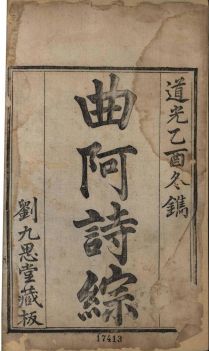 道光乙酉冬鐫
曲阿詩綜
劉九思堂藏板
17413